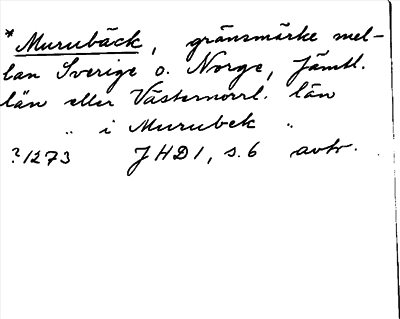 *Murubäck, gränsmärke mel-
lan Sverige o. Norge, Jämtl.
län eller Västernorrl. län
" i Murubek "
?1273 JHD 1, s.6 avtr.